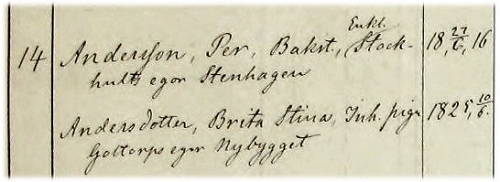 Enkl.
14 Andersson, Per, Bakst., Stock- 18 27/6, 16
hults egor Stenhagen
Andersdotter, Brita Stina, Inh. piga 1825, 10/6.
Gottorps egor Nybygget